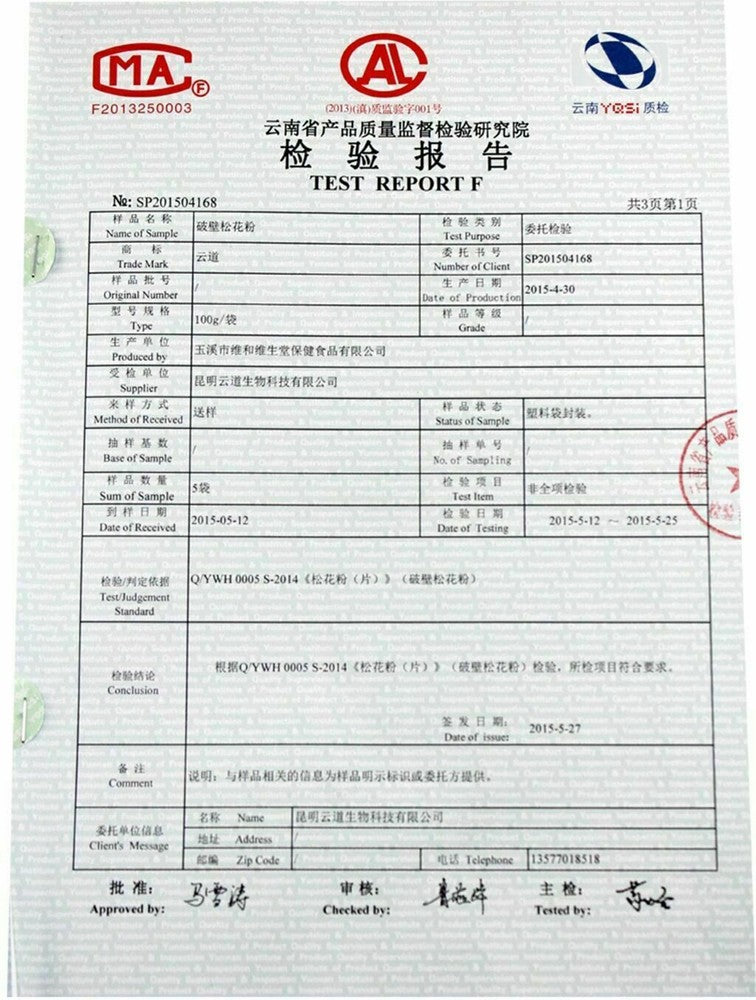 MA F
F2013250003
AL
(2013)(滇)质监验字001号
云南YQSi质检
云南省产品质量监督检验研究院
检验报告
TEST REPORT F
№: SP201504168
共3页第1页
样品名称 Name of Sample 破壁松花粉 检验类别 Test Purpose 委托检验
商标 Trade Mark 云道 委托书号 Number of Client SP201504168
样品批号 Original Number / 生产日期 Date of Production 2015-4-30
型号规格 Type 100g/袋 样品等级 Grade /
生产单位 Produced by 玉溪市维和维生堂保健食品有限公司
受检单位 Supplier 昆明云道生物科技有限公司
来样方式 Method of Received 送样 样品状态 Status of Sample 塑料袋封装。
抽样基数 Base of Sample / 抽样单号 No. of Sampling /
样品数量 Sum of Sample 5袋 检验项目 Test Item 非全项检验
到样日期 Date of Received 2015-05-12 检验日期 Date of Testing 2015-5-12 ~ 2015-5-25
检验/判定依据 Test/Judgement Standard Q/YWH 0005 S-2014《松花粉（片）》（破壁松花粉）
检验结论 Conclusion 根据Q/YWH 0005 S-2014《松花粉（片）》（破壁松花粉）检验，所检项目符合要求。
签发日期: Date of issue: 2015-5-27
备注 Comment 说明：与样品相关的信息为样品明示标识或委托方提供。
委托单位信息 Client's Message
名称 Name 昆明云道生物科技有限公司
地址 Address /
邮编 Zip Code / 电话 Telephone 13577018518
批准: Approved by: 马雪涛 审核: Checked by: 主检: Tested by:
云南省产品质
检验